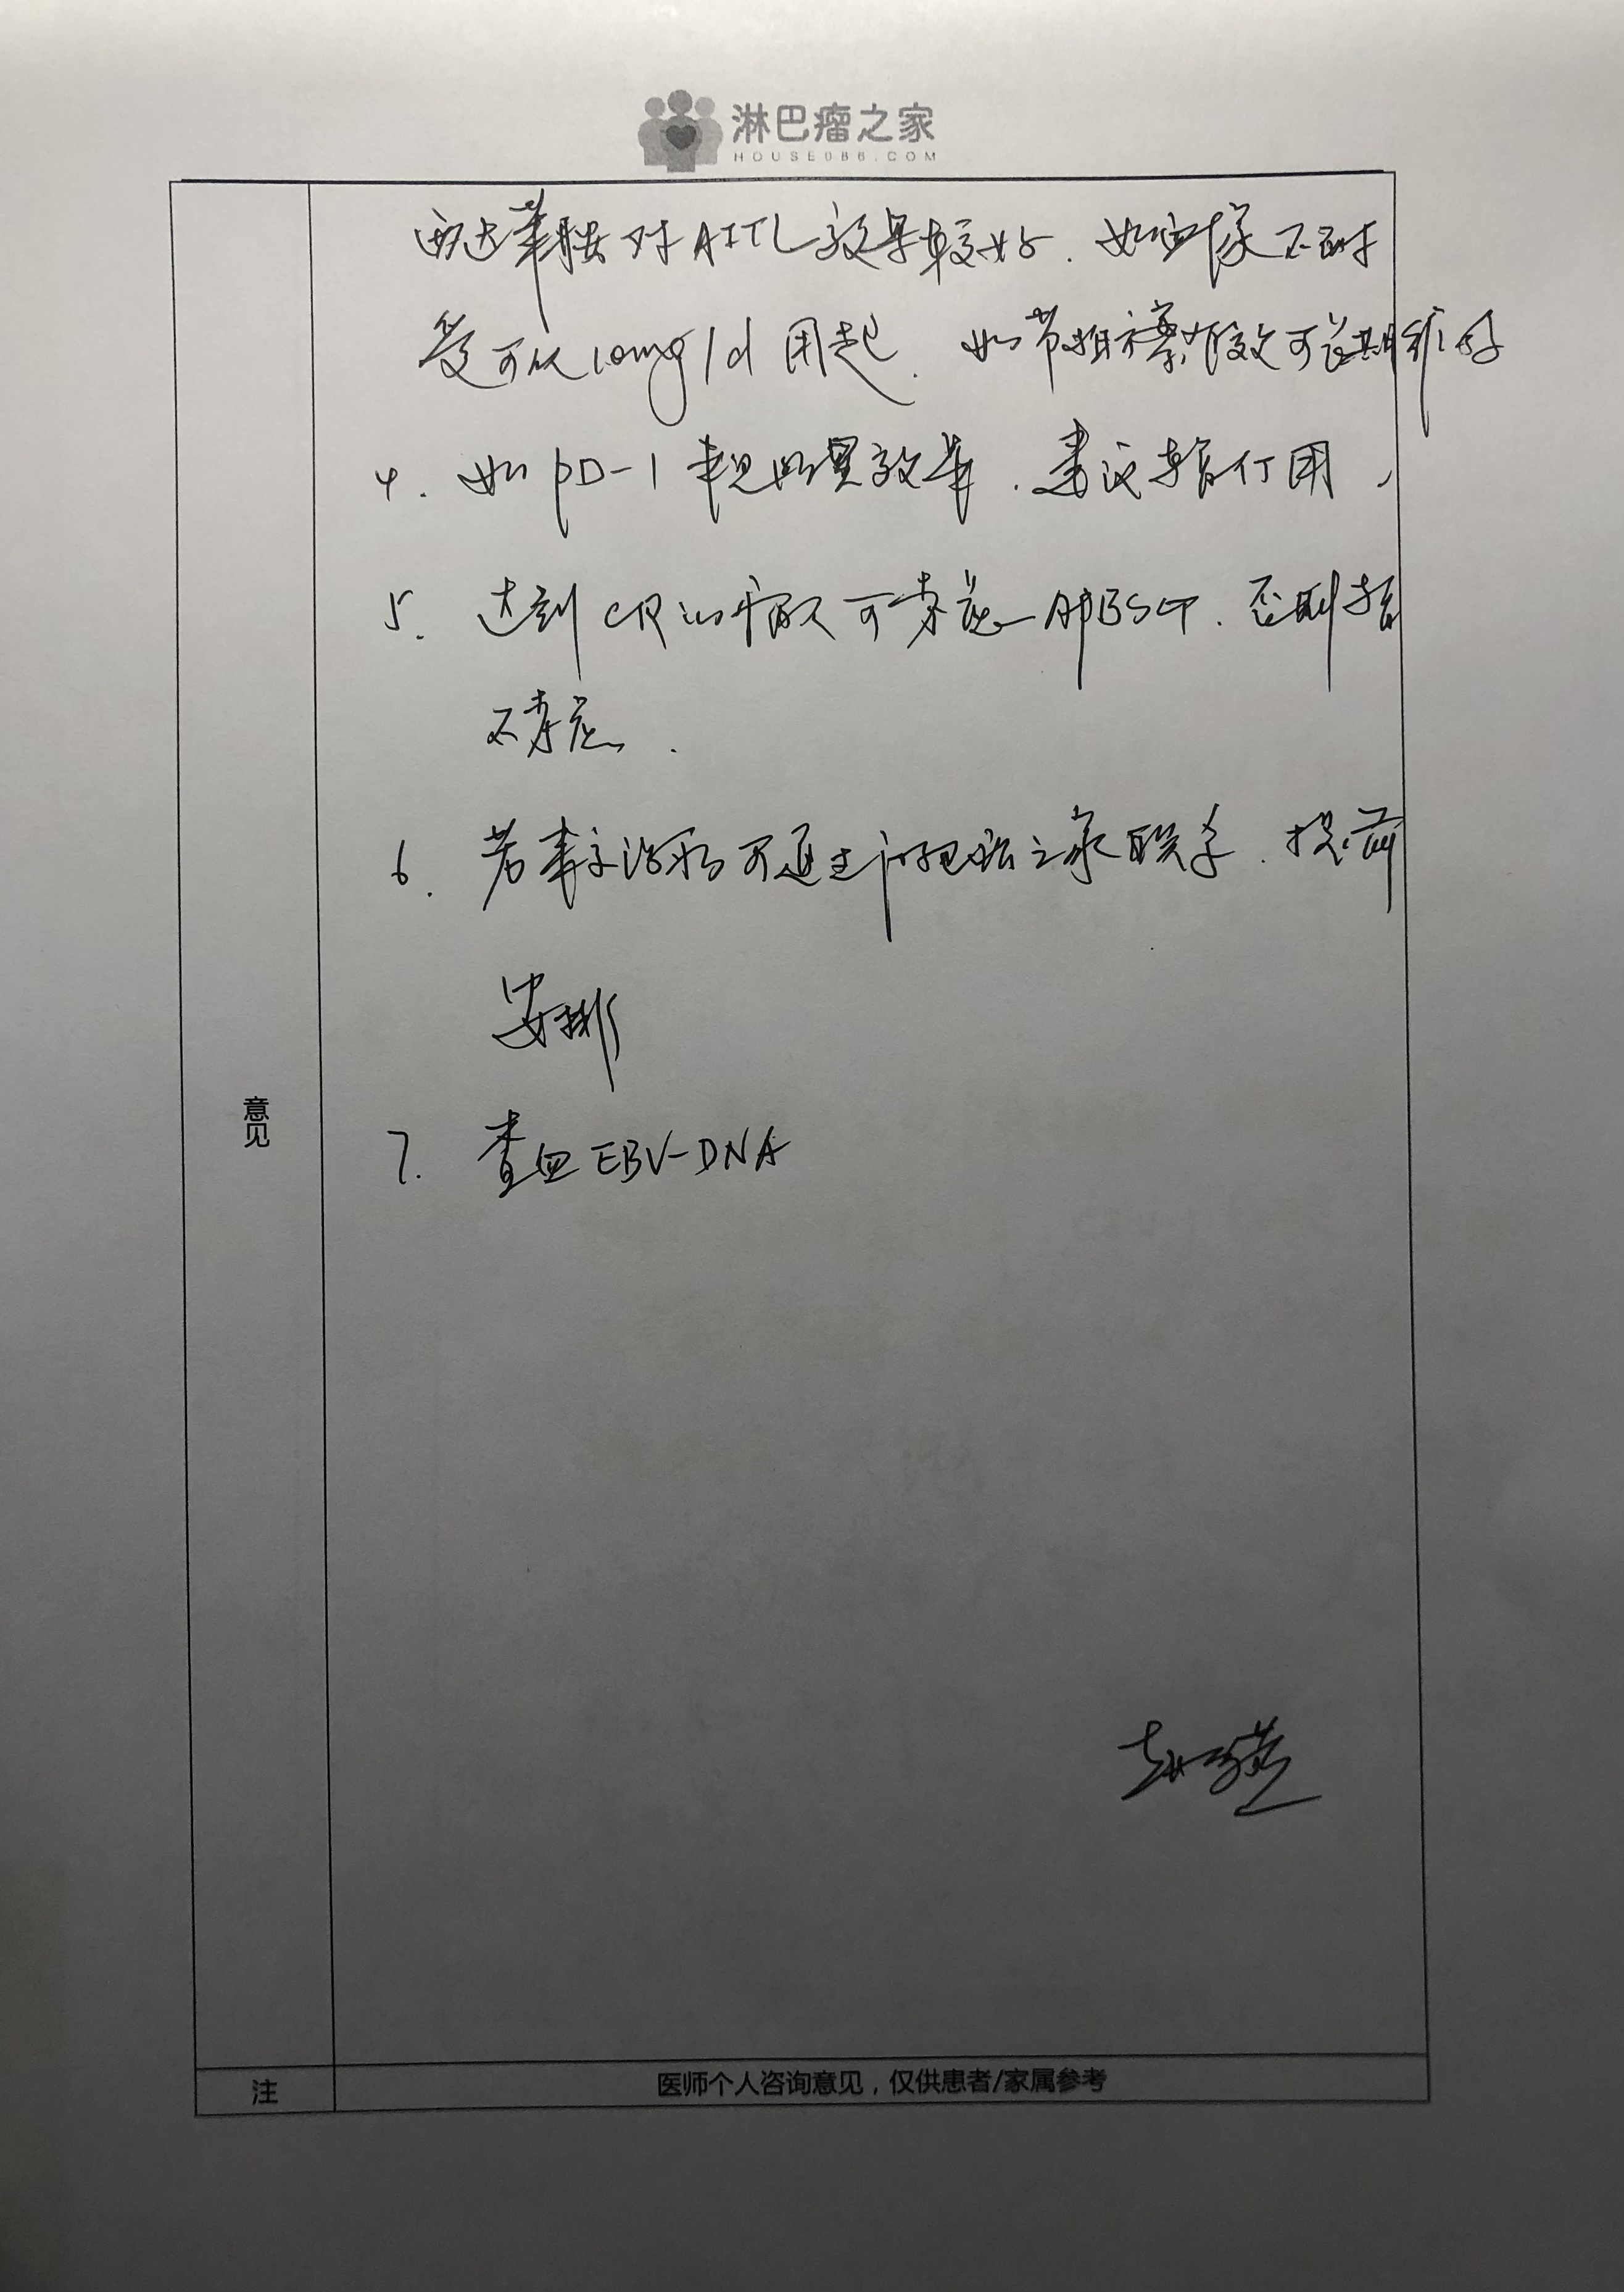 淋巴瘤之家
HOUSE086.COM
西达苯胺对AITL效果较好.如血象不耐
受可从10mg/d用起.如节拍方案有效可长期维持
4. 如PD-1未见明显效果.建议暂停用,
5. 达到CR的情况可考虑APBSCT.否则暂
不考虑.
6. 若来京治疗可通过淋巴瘤之家联系.提前
安排
7. 查血EBV-DNA
意见
注
医师个人咨询意见，仅供患者/家属参考